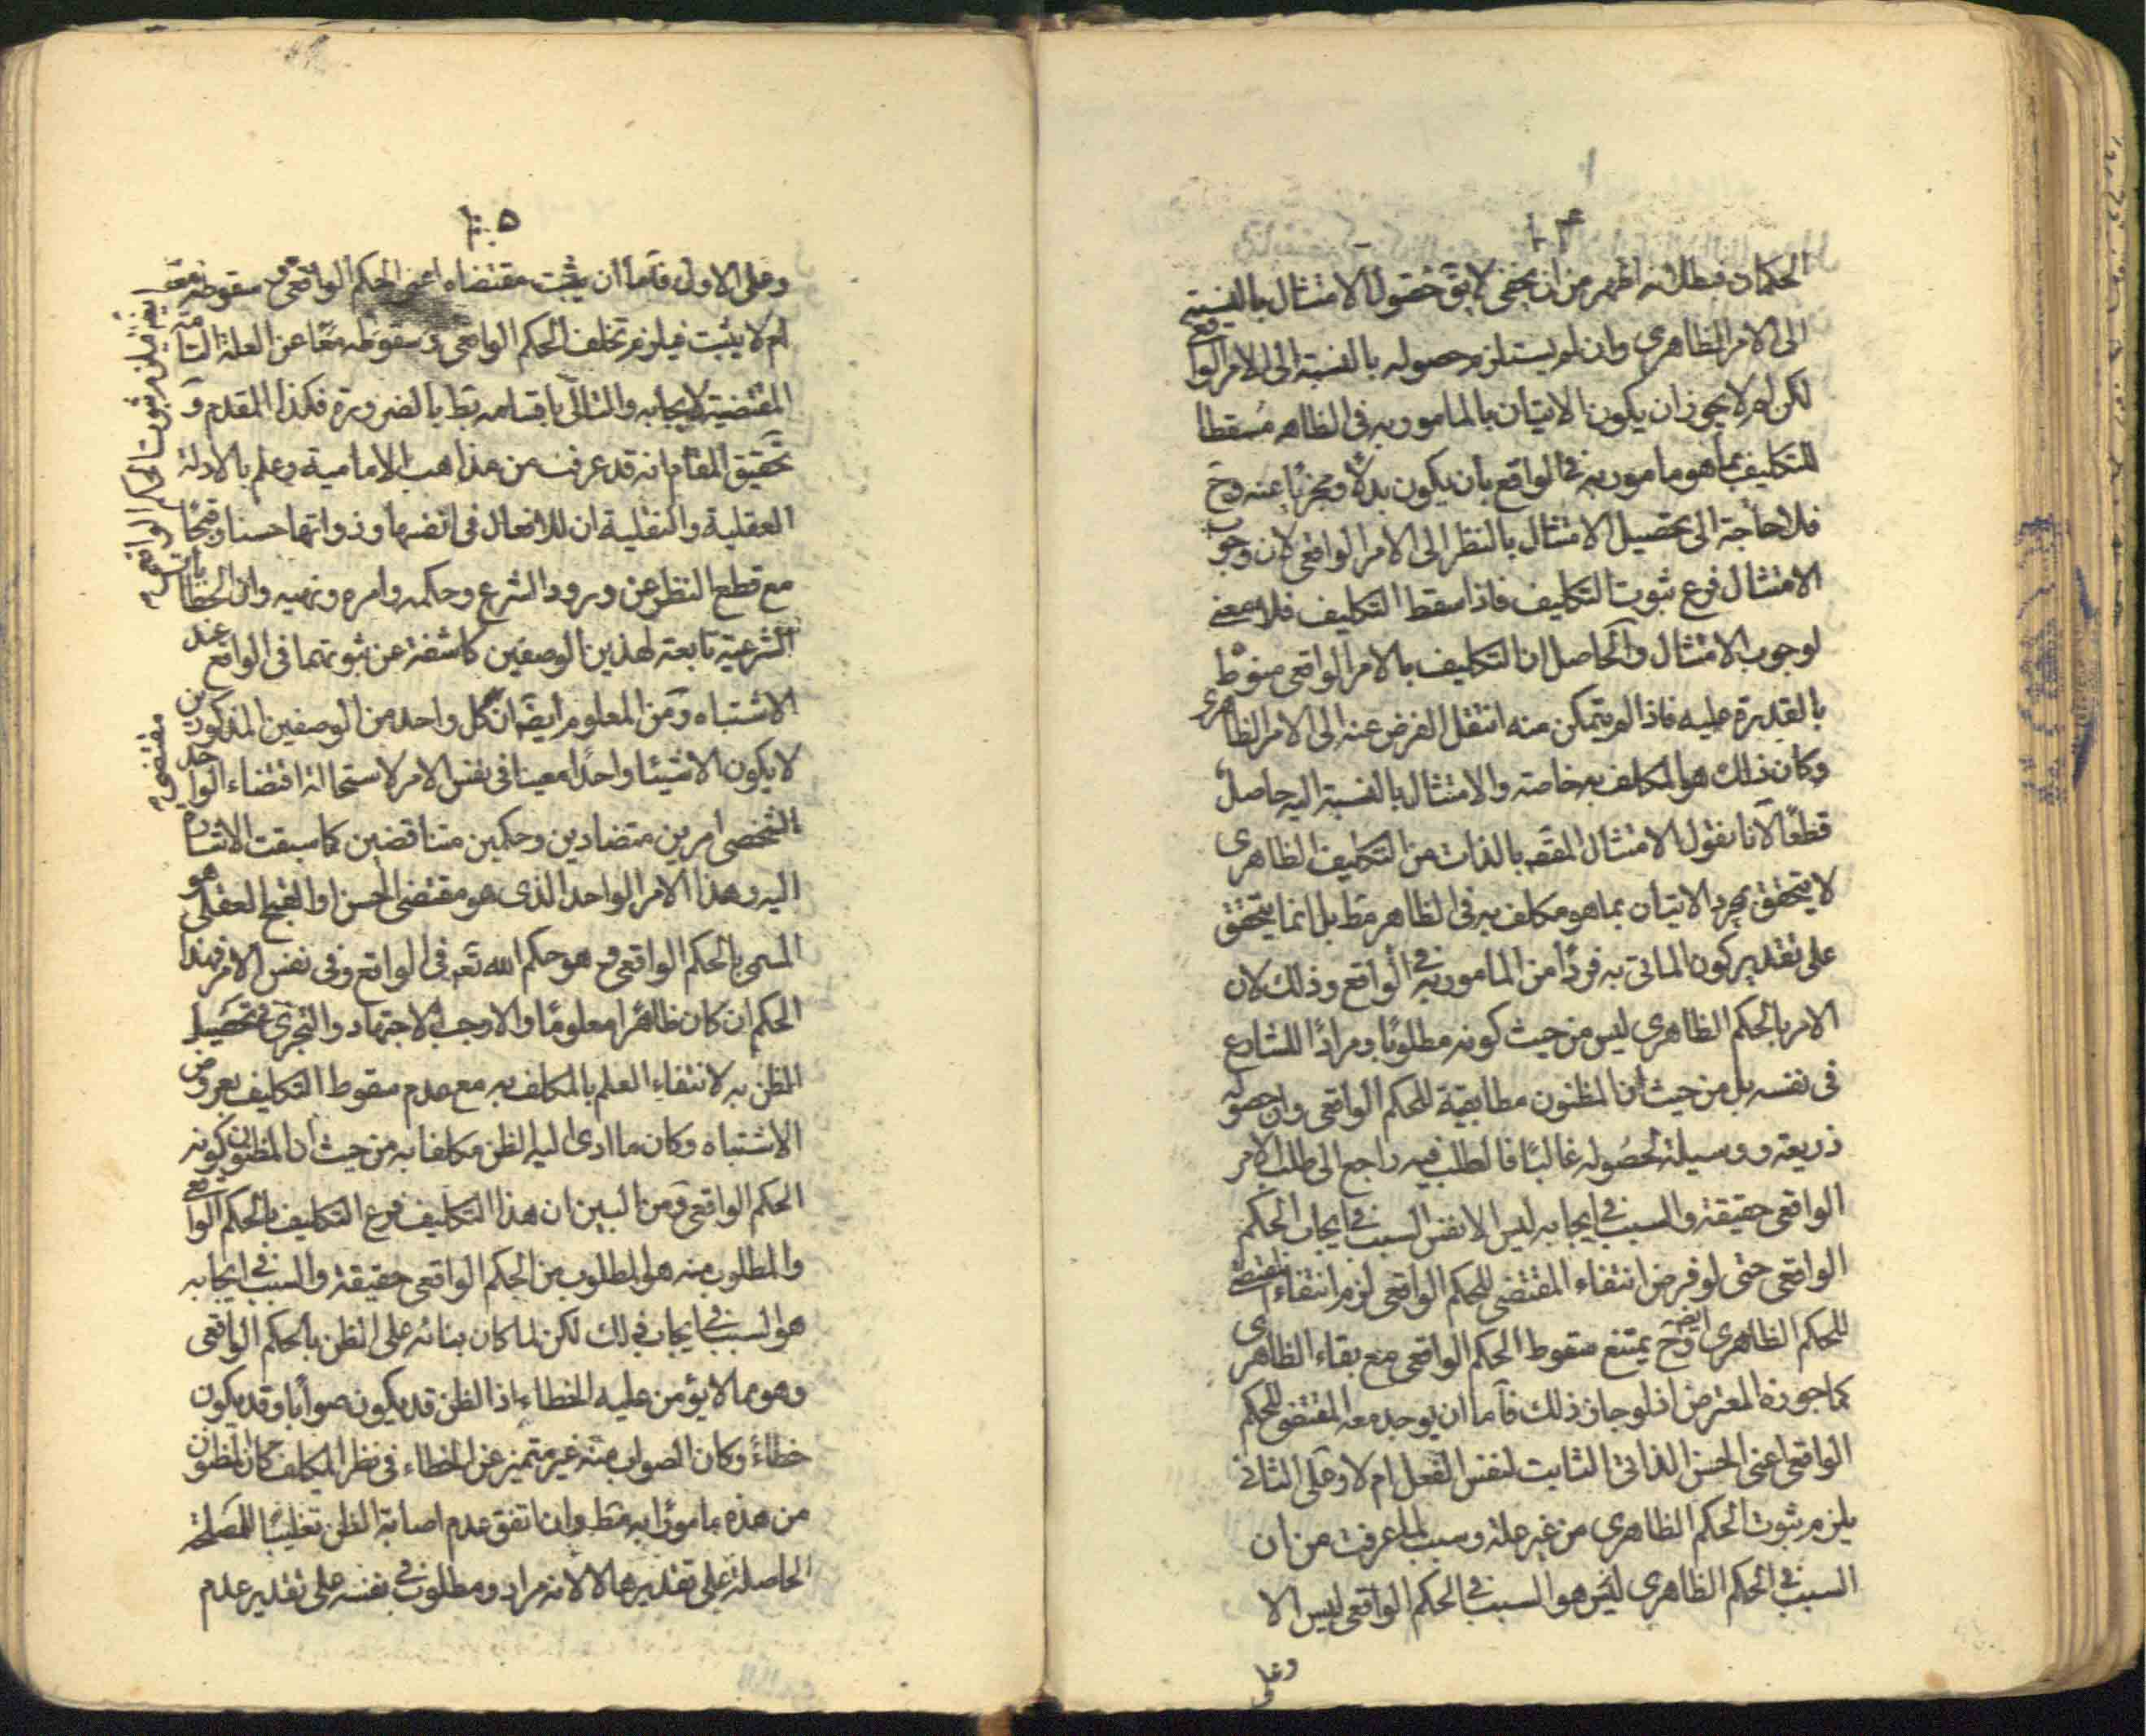 ١٠٤
الحكماء فبطلانه اظهر من ان يخفى لا يق حصول الامتثال بالنسبة
الى الامر الظاهرى وان لم يستلزم حصوله بالنسبة الى الامر الواقعى
لكن لم لا يجوز ان يكون الاتيان بالمامور به فى الظاهر مسقطا
للتكليف بما هو مامور به فى الواقع بان يكون بدلا ومجزيا عنه وح
فلا حاجة الى تحصيل الامتثال بالنظر الى الامر الواقعى لان وجوب
الامتثال فرع ثبوت التكليف فاذا سقط التكليف فلا معنى
لوجوب الامتثال والحاصل ان التكليف بالامر الواقعى منوط
بالقدرة عليه فاذا لم يتمكن منه انتقل الفرض عنه الى الامر الظاهرى
وكان ذلك هو المكلف به خاصة والامتثال بالنسبة اليه حاصل
قطعا لانا نقول الامتثال المقصـ بالذات من التكليف الظاهرى
لا يتحقق بمجرد الاتيان بما هو مكلف به فى الظاهر فقط بل انما يتحقق
على تقدير كون الماتى به فردا من المامور به فى الواقع وذلك لان
الامر بالحكم الظاهرى ليس من حيث كونه مطلوبا ومرادا للشارع
فى نفسه بل من حيث ان المظنون مطابقية للحكم الواقعى وان حصوله
ذريعة ووسيلة لحصوله غالبا فالطلب فيه راجع الى طلب الامر
الواقعى حقيقة والسبب فى ايجابه ليس الا نفس السبب فى ايجاب الحكم
الواقعى حتى لو فرض انتفاء المقتضى للحكم الواقعى لزم انتفاء المقتضى
للحكم الظاهرى ايضا وح يمتنع سقوط الحكم الواقعى مع بقاء الظاهرى
كما جوزه المعترض اذ لو جاز ذلك فاما ان يوجد معه المقتضى للحكم
الواقعى اعنى الحسن الذاتى الثابت لنفس الفعل ام لا وعلى الثانى
يلزم ثبوت الحكم الظاهرى من غير علة وسبب لما عرفت من ان
السبب فى الحكم الظاهرى ليس هو السبب فى الحكم الواقعى ليس الا
وعلى
١٠٥
وعلى الاول فاما ان يثبت مقتضاه اعنى الحكم الواقعى وسقوطه معه
ام لا يثبت فيلزم تخلف الحكم الواقعى وسقوطه معا عن العلة التامة
المقتضية لايجابه والتالى باقسامه بط بالضرورة فكذا المقدم و
تحقيق المقام انه قد عرفت من مذاهب الامامية وعلم بالادلة
العقلية والنقلية ان للافعال فى انفسها وذواتها حسنا وقبحا
مع قطع النظر عن ورود الشرع وحكمه وامره ونهيه وان الخطابات
الشرعية تابعة لهذين الوصفين كاشفة عن ثبوتهما فى الواقع عند
الاشتباه ومن المعلوم ايضا ان كل واحد من الوصفين المذكورين
لا يكون الا شيئا واحدا معينا فى نفس الامر لاستحالة اقتضاء الواحد
الشخصى امرين متضادين وحكمين متناقضين كما سبقت الاشارة
اليه وهذا الامر الواحد الذى هو مقتضى الحسن او القبح العقلى هو
المسمى بالحكم الواقعى وهو حكم الله تع فى الواقع وفى نفس الامر فهذا
الحكم ان كان ظاهرا معلوما والا وجب الاجتهاد والتحرى فى تحصيل
الظن به لانتفاء العلم بالمكلف به مع عدم سقوط التكليف بعروض
الاشتباه وكان ما ادى اليه الظن مكلفا به من حيث ان المظنون كونه
الحكم الواقعى ومن البين ان هذا التكليف فرع التكليف بالحكم الواقعى
والمطلوب منه هو المطلوب من الحكم الواقعى حقيقة والسبب فى ايجابه
هو السبب فى ايجاب ذلك لكن لما كان بنائه على الظن بالحكم الواقعى
وهو مما لا يؤمن عليه الخطاء اذ الظن قد يكون صوابا وقد يكون
خطاء وكان الصواب منه غير متميز عن الخطاء فى نظر المكلف كان المظنون
من هذه مامورا به فقط وان اتفق عدم اصابة الظن تغليبا للمصلحة
الحاصلة على تقديرها لا لانه مراد ومطلوب فى نفسه على تقدير عدم
فيلزم ثبوت الحكم الواقعى
مقتضى